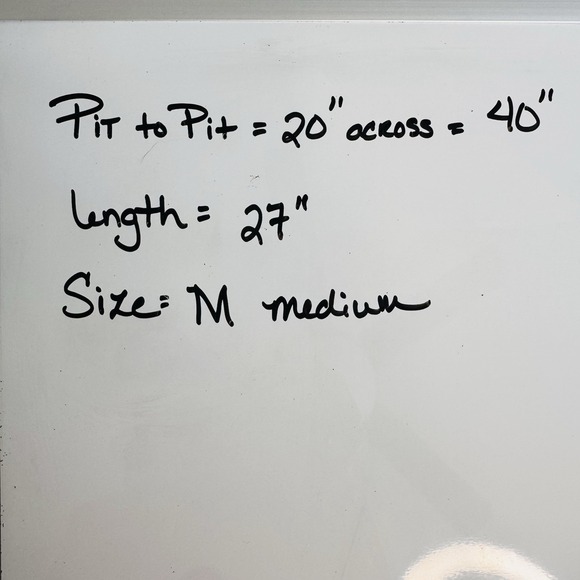 Pit to Pit = 20" across = 40"
Length = 27"
Size = M medium